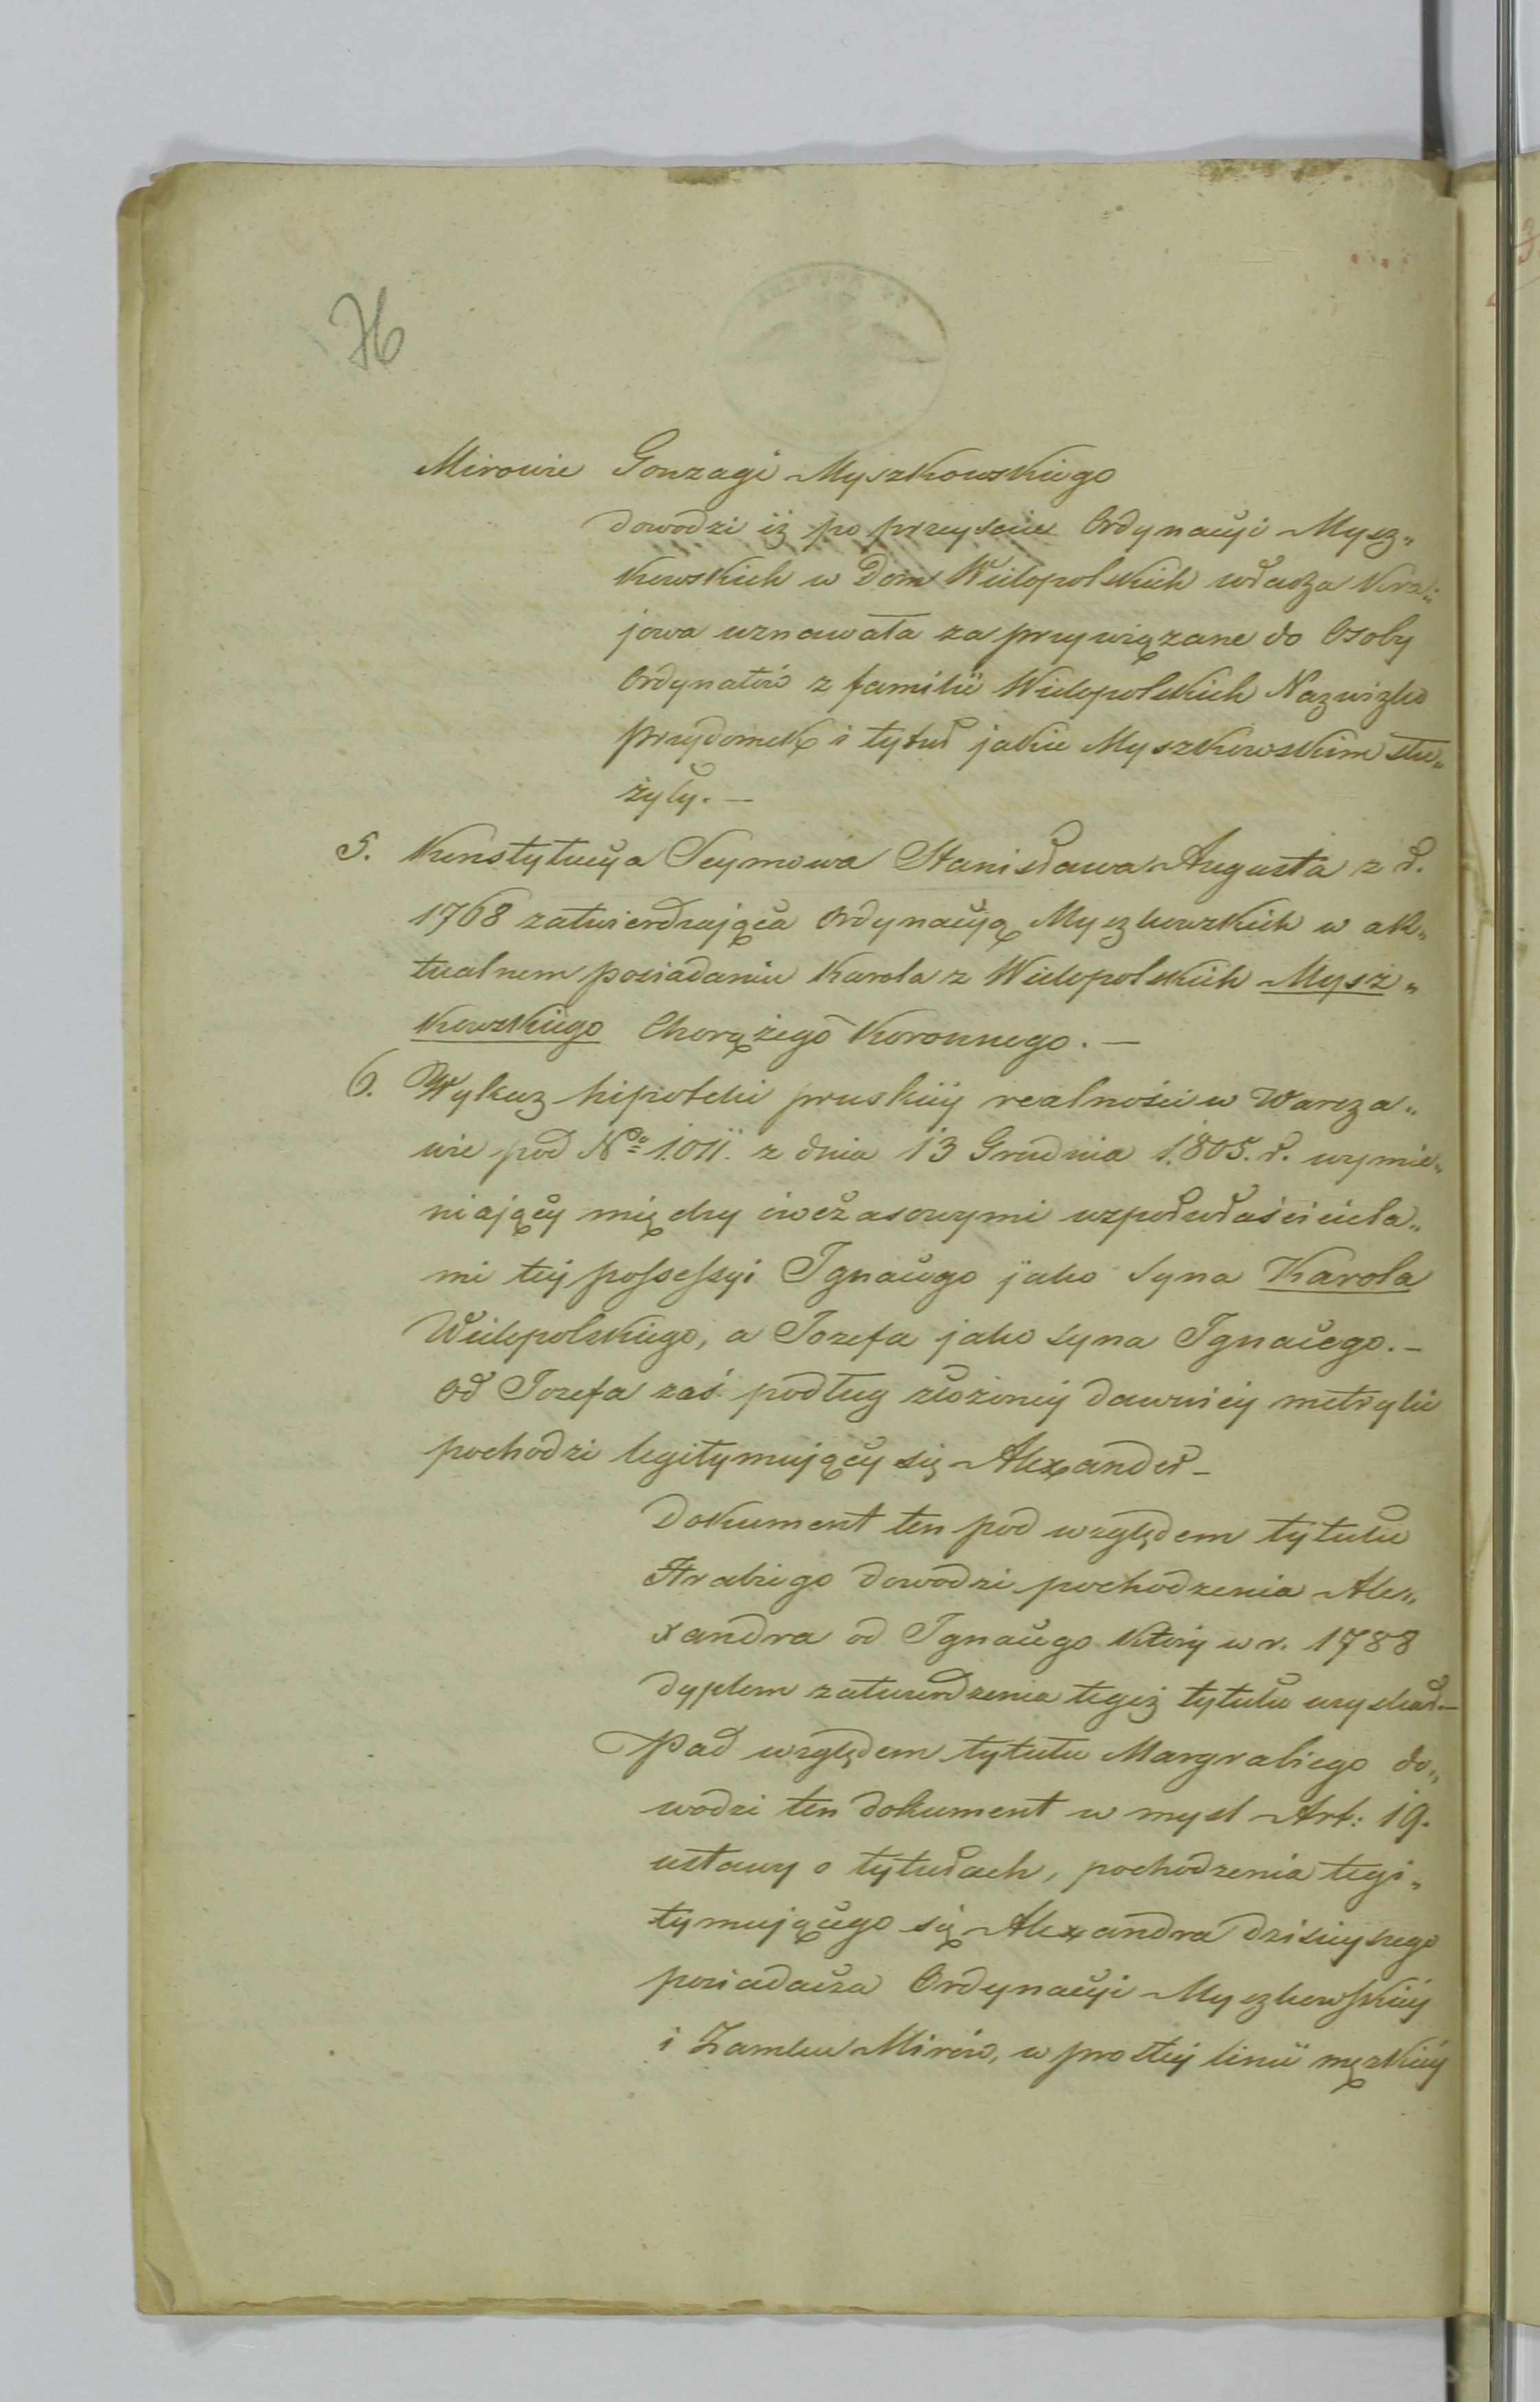 76
Mirowie Gonzagi Myszkowskiego
dowodzi iż po przeyściu Ordynacyi Mysz„
kowskich w Dom Wielopolskich władza Kra„
jowa uznawała za przywiązane do Osoby
Ordynatów z familii Wielopolskich Nazwisko
przydomek i tytuł jakie Myszkowskim słu„
żyły. —
5. Konstytucya Seymowa Stanisława Augusta z r.
1768 zatwierdzająca Ordynacyą Myszkowskich w ak„
tualnem posiadaniu Karola z Wielopolskich Mysz„
kowskiego Chorążego Koronnego. —
6. Wykaz hipoteki pruskiey realności w Warsza„
wie pod No 1.011. z dnia 13 Grudnia 1.805. r. wymie„
niający między ówczasowymi wspołwłaściciela„
mi tey possessyi Ignacego jako syna Karola
Wielopolskiego, a Jozefa jako syna Ignacego. —
Od Jozefa zaś podług złożoney dawniey metryki
pochodzi legitymujący się Alexander —
Dokument ten pod względem tytułu
Hrabiego dowodzi pochodzenia Ale„
xandra od Ignacego który w r. 1788
dyplom zatwierdzenia tegoż tytułu uzyskał. —
Pod względem tytułu Margrabiego do„
wodzi ten dokument w myśl Art: 19.
ustawy o tytułach, pochodzenia legi„
tymującego się Alexandra dzisieyszego
posiadacza Ordynacyi Myszkowskiey
i Zamku Mirów, w prostey linii męzkiey